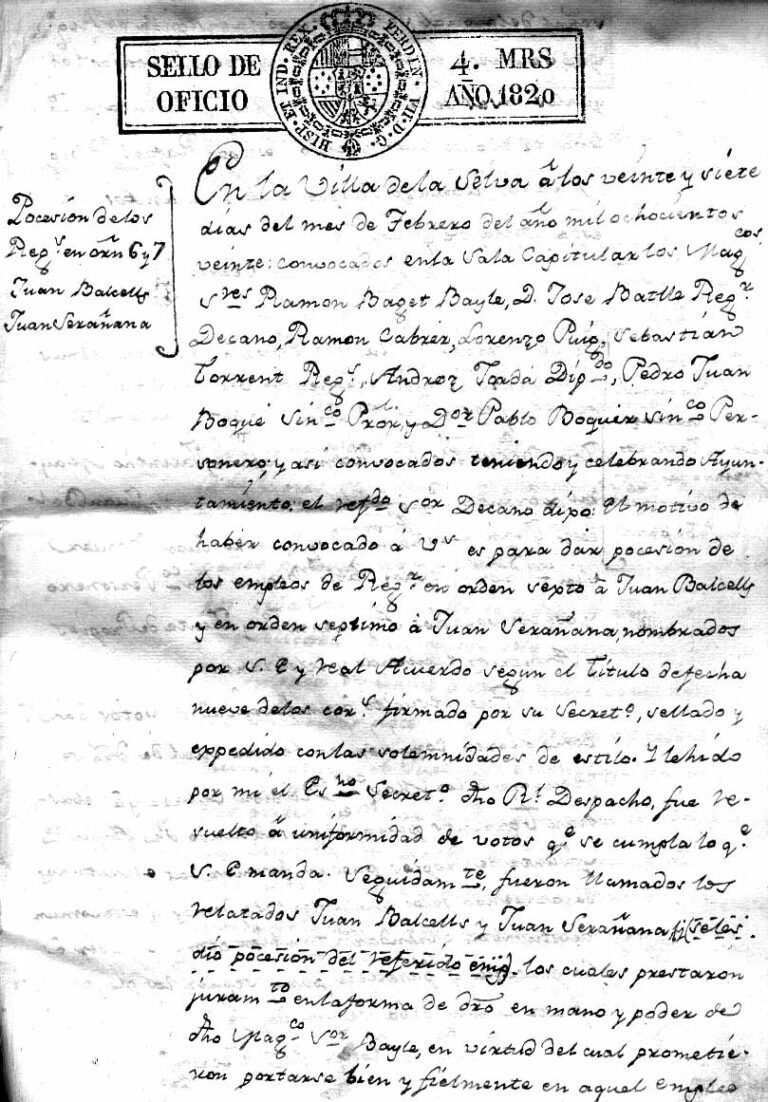 SELLO DE
OFICIO
HISP. ET IND. REX. FERDIN. VII. D. G.
4. MRS
AÑO. 1820
Pocesión de los
Reg.s en orñ 6 y 7
Juan Balcells
Juan Serañana
En la Villa de la Selva â los veinte y siete
días del mes de Febrero del año mil ochocientos
veinte: convocados en la Sala Capitular los Mag.cos
S.res Ramon Baget Bayle, D. Jose Batlle Reg.r
Decano, Ramon Cabrer, Lorenzo Puig, Sebastián
Torrent Reg.s, Andrez Tarda Dip.do, Pedro Juan
Boqué Sin.co Pror.l, y D.or Pablo Boquer Sin.co Per-
sonero; y así convocados teniendo y celebrando Ayun-
tamiento: el ref.do S.or Decano dipo: El motivo de
haber convocado à V.s es para dar pocesión de
los empleos de Reg.r en orden sexto â Juan Balcells
y en orden septimo à Juan Serañana, nombrados
por S. E y real Acuerdo segun el Título de fecha
nueve de los cor.s firmado por su Secret.o, sellado y
expedido con las solemnidades de estilo. Y lehido
por mi el Es.no Secret.o dho R.l Despacho, fue re-
suelto â uniformidad de votos q.e se cumpla lo q.e
S. E manda. Seguidam.te, fueron llamados los
relatados Juan Balcells y Juan Serañana (se les
dió pocesión del referido emp). los cuales prestaron
juram.to en la forma de dro en mano y poder de
dho Mag.co S.or Bayle, en virtud del cual prometie-
ron portarse bien y fielmente en aquel Empleo